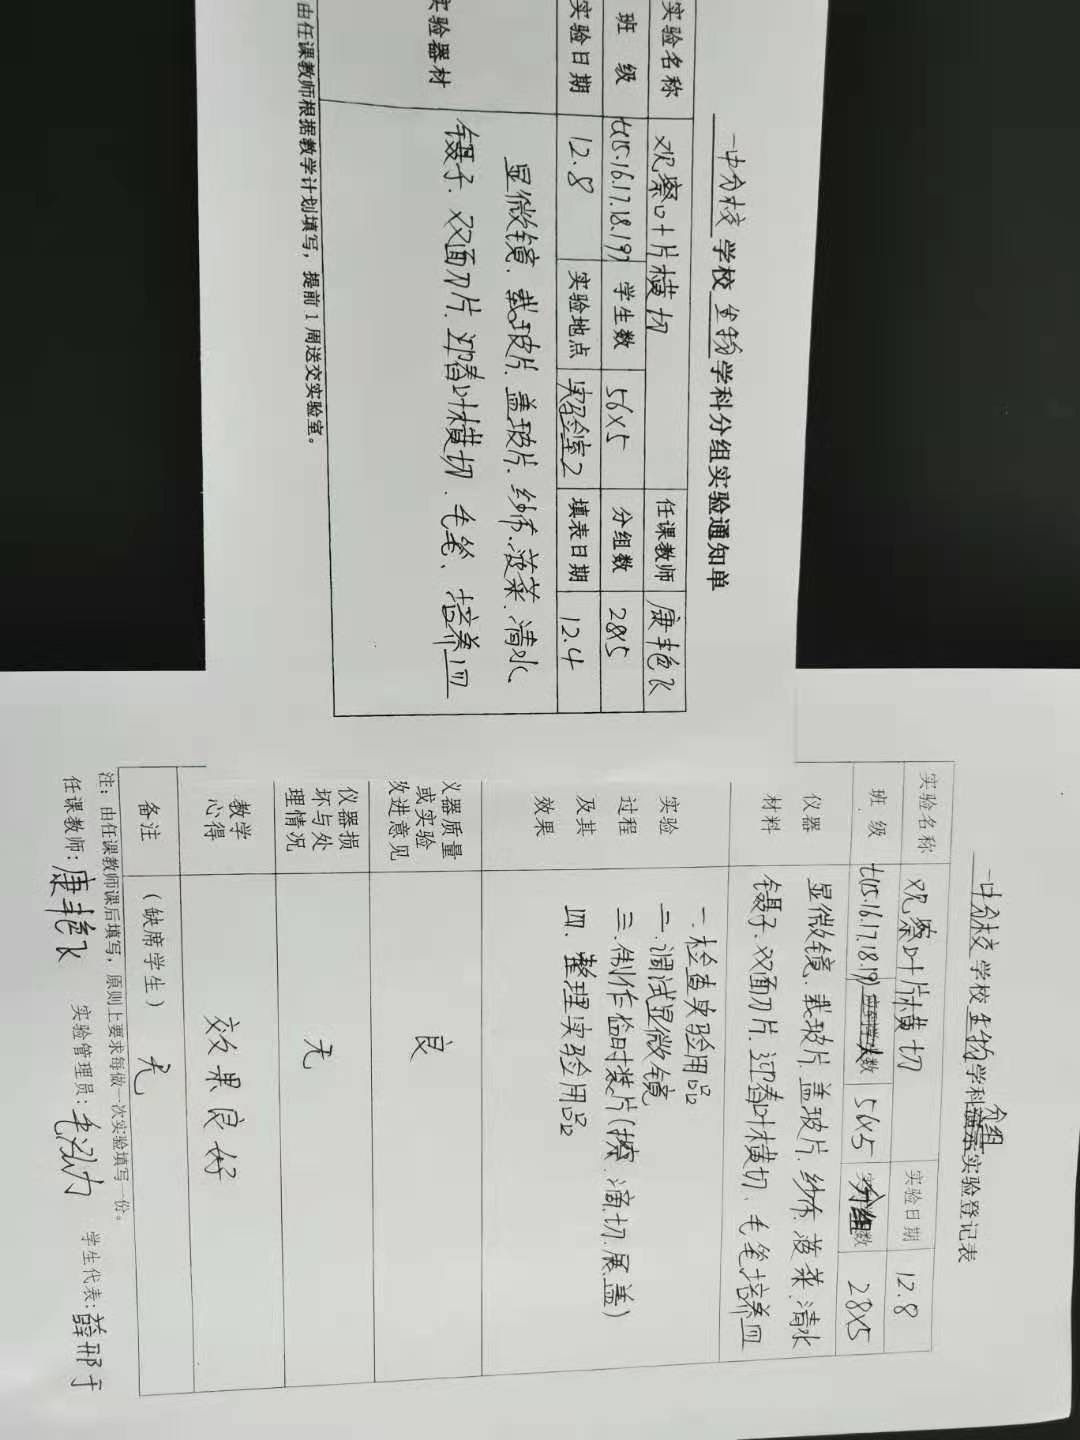 一中分校学校生物学科分组实验通知单
实验名称 观察叶片横切 任课教师 康艳飞
班级 七(15.16.17.18.19) 学生数 56×5 分组数 28×5
实验日期 12.8 实验地点 实验室2 填表日期 12.4
实验器材 显微镜、载玻片、盖玻片、纱布、菠菜、清水、
镊子、双面刀片、迎春叶横切、毛笔、培养皿
由任课教师根据教学计划填写，提前1周送交实验室。
一中分校学校生物学科分组实验登记表
实验名称 观察叶片横切 实验日期 12.8
班级 七(15.16.17.18.19) 数 56×5 分组数 28×5
仪器 显微镜、载玻片、盖玻片、纱布、菠菜、清水
材料 镊子、双面刀片、迎春叶横切、毛笔、培养皿
实验 一、检查实验用品
过程 二、调试显微镜
及其 三、制作临时装片(擦、滴、切、展、盖)
效果 四、整理实验用品
仪器质量
或实验 良
改进意见
仪器损
坏与处 无
理情况
教学 效果良好
心得
备注 (缺席学生) 无
注：由任课教师课后填写，原则上要求每做一次实验填写一份。
任课教师：康艳飞 实验管理员：毛 学生代表：薛那于